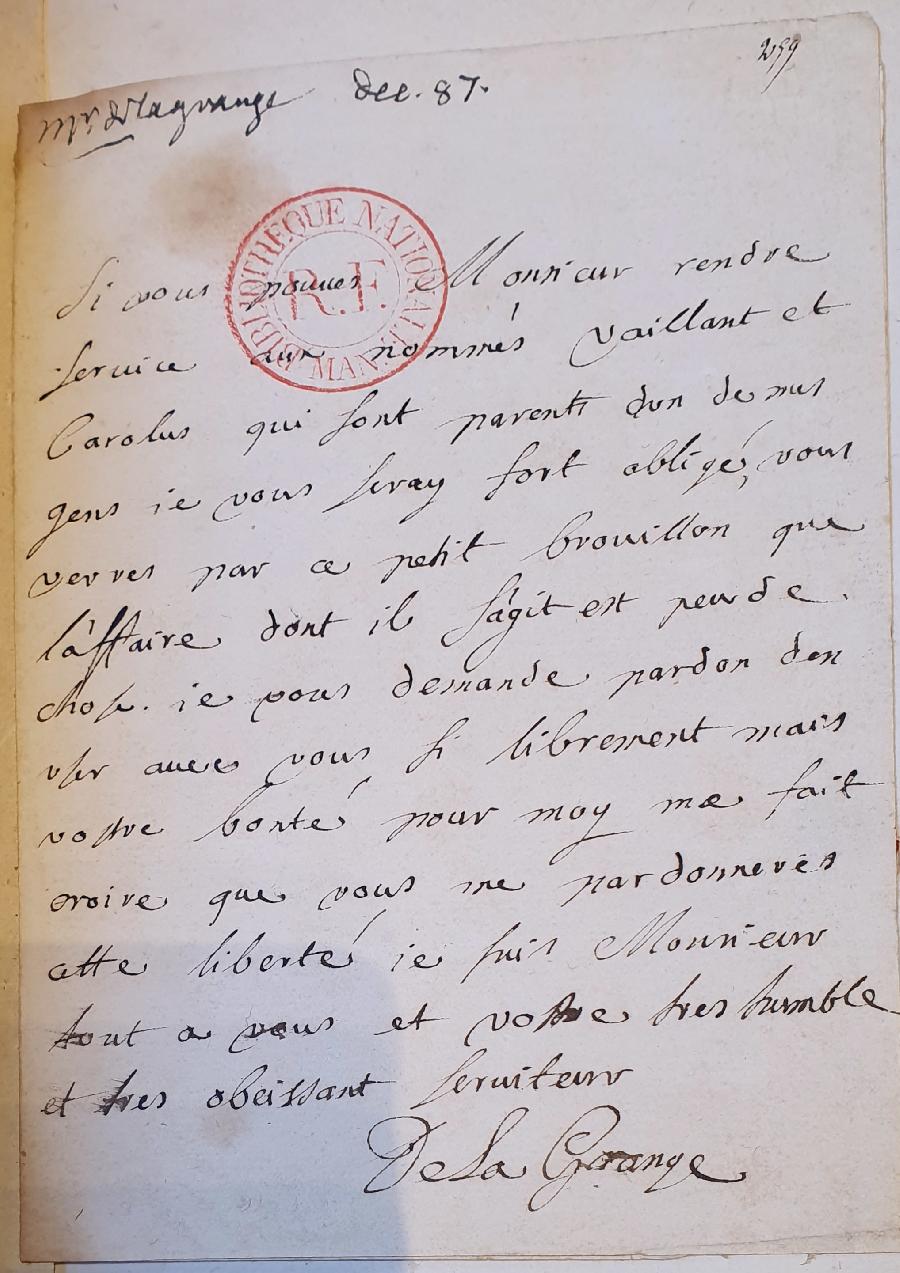 259
Mr. de lagrange dec. 87.
BIBLIOTHEQUE NATIONALE MAN.
R.F.
Si vous pouues Monsieur rendre
seruice aux nommés vaillant et
Carolus qui sont parents dun de mes
gens ie vous seray fort obligé, vous
verres par ce petit brouillon que
l'affaire dont il s'agit est peu de
chose. ie vous demande pardon den
vser auec vous si librement mais
vostre bonté pour moy me fait
croire que vous me pardonneres
cette liberté ie suis Monsieur
tout a vous et vostre tres humble
et tres obeissant seruiteur
De La Grange